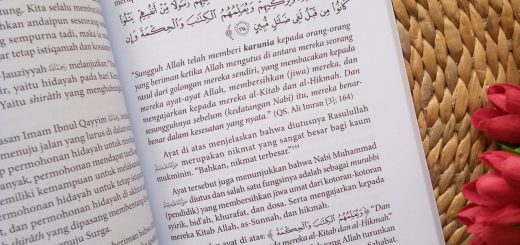 Kita selalu
sempurna tadi,
tetap istiqamah
-Jauziyyah melanjutkan,
yaitu hidayah pada
Yaitu shirâth yang
Imam Ibnul Qayyim
menuju jalan yang lurus
permohonan hidayah untuk
permohonan mendapatkan
miliki kemampuan untuk
hidayah untuk tetap
shirâth yang dipasang
membentang
menuju Surga.
رَسُولًا مِّنْ أَنفُسِهِمْ يَتْلُوا
وَيُعَلِّمُهُمُ الْكِتَابَ وَالْحِكْمَةَ وَإِن
كَانُوا مِن قَبْلُ لَفِي ضَلَالٍ مُّبِينٍ ﴿١٦٤﴾
"Sungguh Allah telah memberi karunia kepada orang-orang
yang beriman ketika Allah mengutus di antara mereka seorang
rasul dari golongan mereka sendiri, yang membacakan kepada
mereka ayat-ayat Allah, membersihkan (jiwa) mereka, dan
mengajarkan kepada mereka al-Kitab dan al-Hikmah. Dan
sesungguhnya sebelum (kedatangan Nabi) itu, mereka benar-
benar dalam kesesatan yang nyata." (QS. Ali Imran [3]: 164)
Ayat di atas menjelaskan bahwa diutusnya Rasulullah
merupakan nikmat yang sangat besar bagi kaum
mukminin. "Bahkan, nikmat terbesar."
Ayat tersebut juga menunjukkan bahwa Nabi Muhammad
diutus dan salah satu fungsinya adalah sebagai murabbi
(pendidik) yang membersihkan jiwa umat dari kotoran-kotoran
syirik, bid'ah, khurafat, dan dosa. Serta mengajarkan kepada
mereka Kitab Allah, as-Sunnah, dan hikmah.
di atas: ﴿وَيُعَلِّمُهُمُ الْكِتَابَ وَالْحِكْمَةَ﴾ "Dan
kepada mereka al-Kitab dan al-Hikmah,"
Allah turunkan